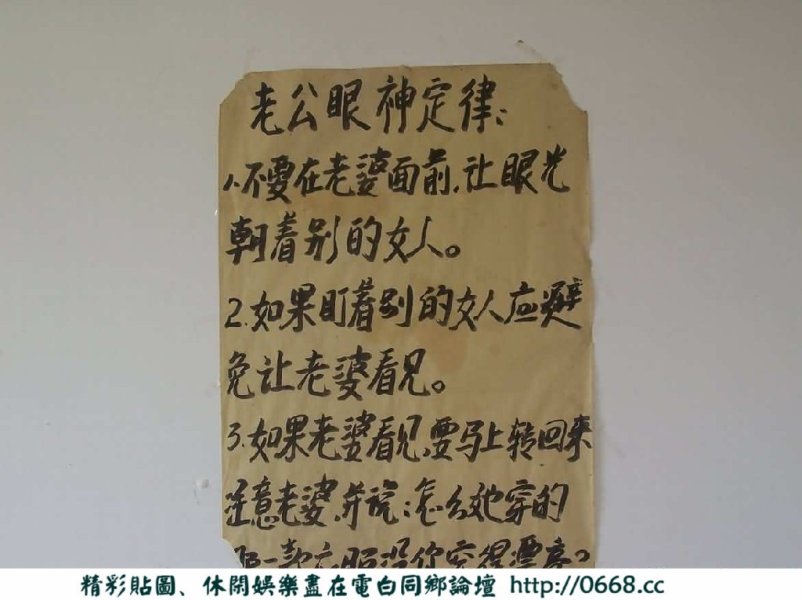 老公眼神定律:
1.不要在老婆面前,让眼光
朝着别的女人。
2.如果盯着别的女人应避
免让老婆看见。
3.如果老婆看见,要马上转回来
注意老婆,并说:怎么她穿的
那一款衣服没你穿得漂亮。
精彩貼圖、休閑娛樂盡在電白同鄉論壇 http://0668.cc